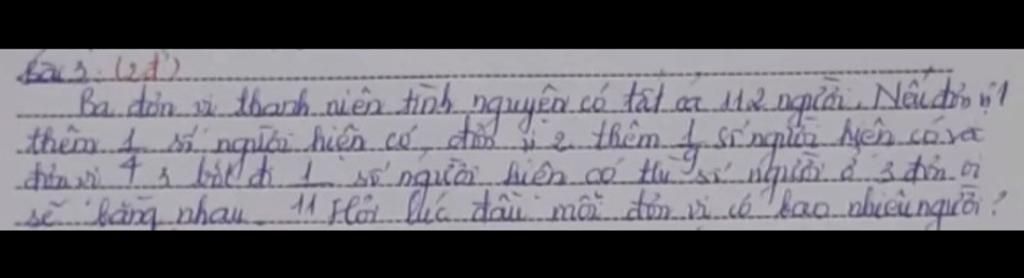 Bài 3: (2đ)
Ba đơn vị thanh niên tình nguyện có tất cả 112 người. Nếu đơn vị 1
thêm 1/4 số người hiện có, đơn vị 2 thêm 1/9 số người hiện có và
đơn vị 3 bớt đi 1/11 số người hiện có thì số người ở 3 đơn vị
sẽ bằng nhau. Hỏi lúc đầu mỗi đơn vị có bao nhiêu người?